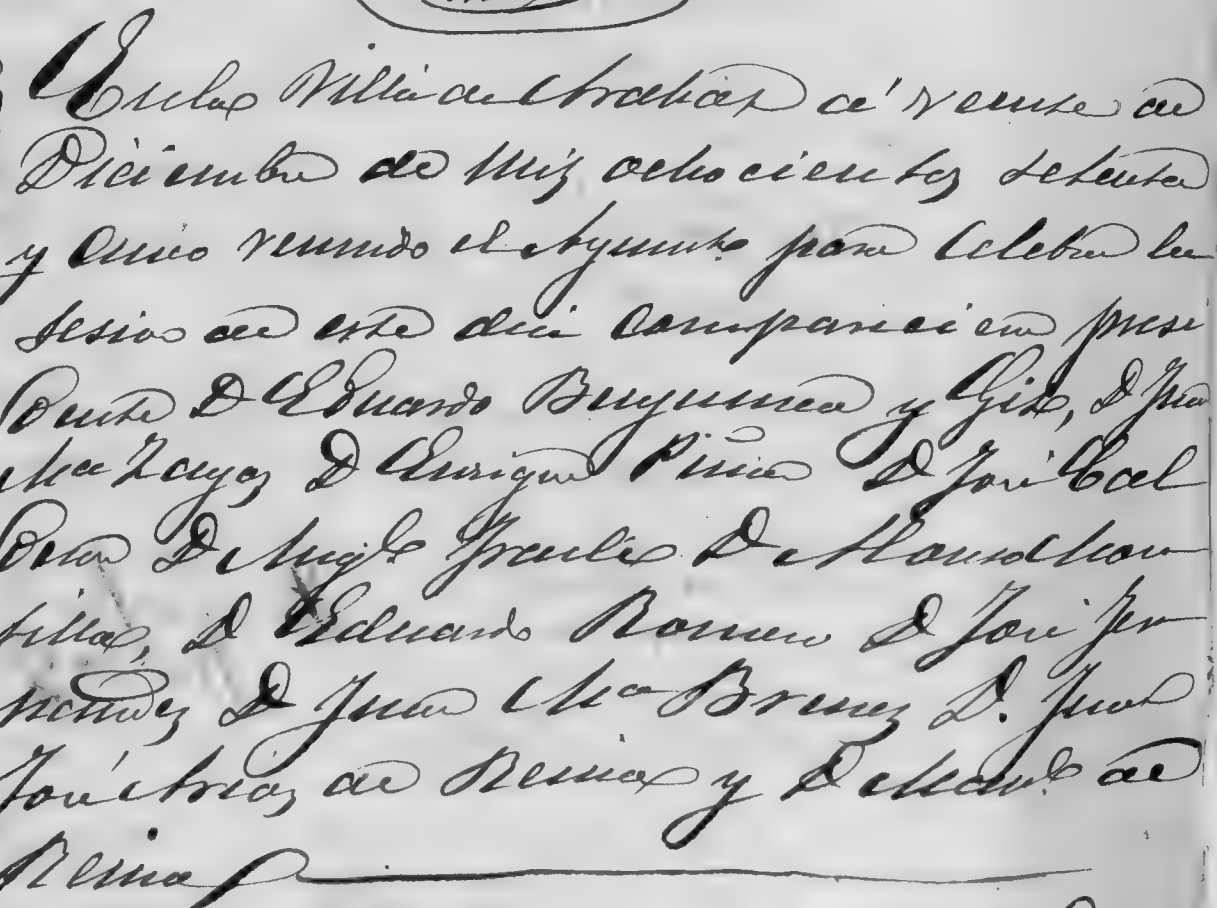 En la Villa de Arahal á veinte de
Diciembre de mil ochocientos setenta
y cinco reunido el Ayunto para celebrar la
sesion de este dia comparecieron presi
dente D Eduardo Benjumea y Gil, D Juan
Ma Zayas D Enrique Piña D José Cal
deron D Migl D Manl Mon
tilla, D Eduardo Romero D José Fer
nandez D Juan Ma Brenes D. Juan
José Arias de Reina y D Manl de
Reina